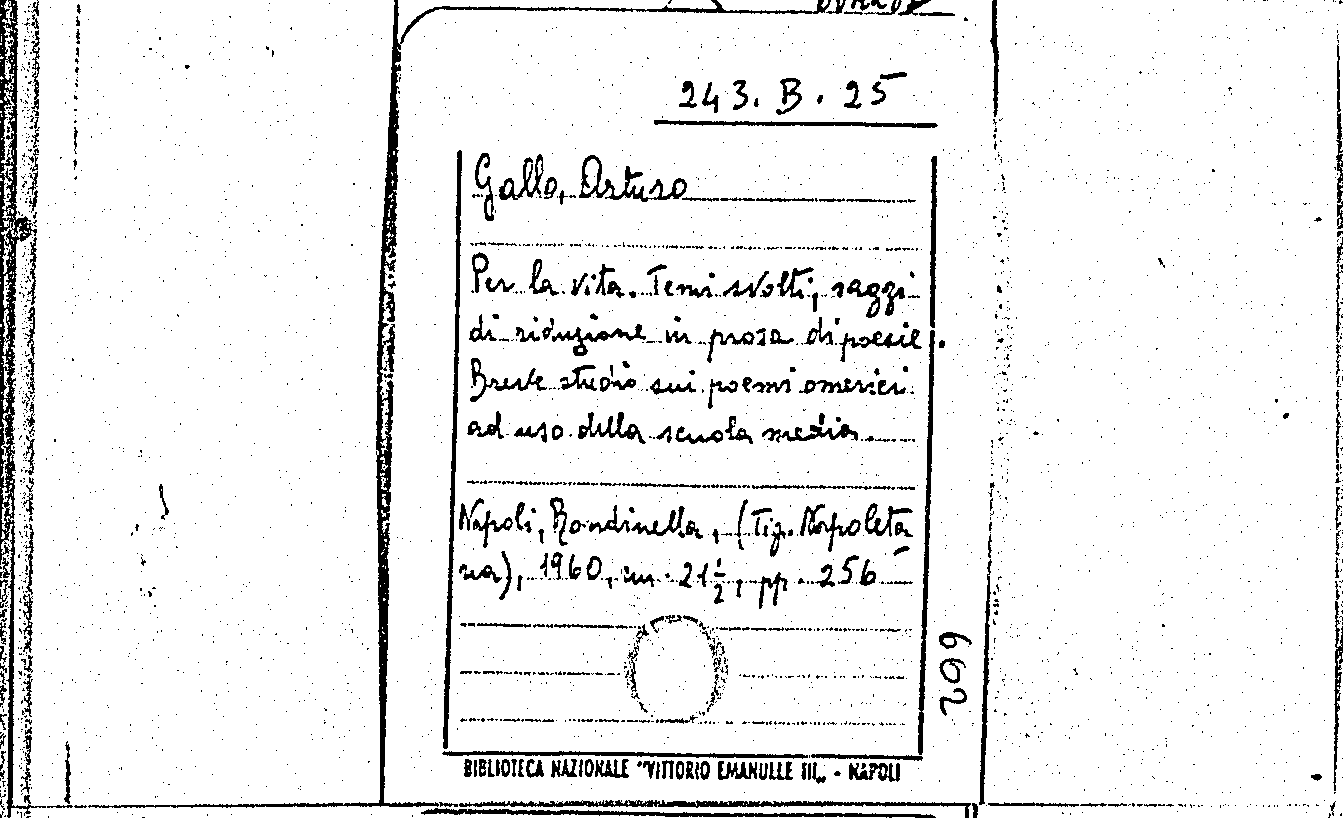 243. B. 25
Gallo, Arturo
Per la vita. Temi svolti, saggi
di riduzione in prosa di poesie.
Breve studio sui poemi omerici
ad uso della scuola media.
Napoli, Rondinella, (Tip. Napoleta
na), 1960, cm. 21 1/2, pp. 256
299
BIBLIOTECA NAZIONALE "VITTORIO EMANULLE III„ - NAPOLI